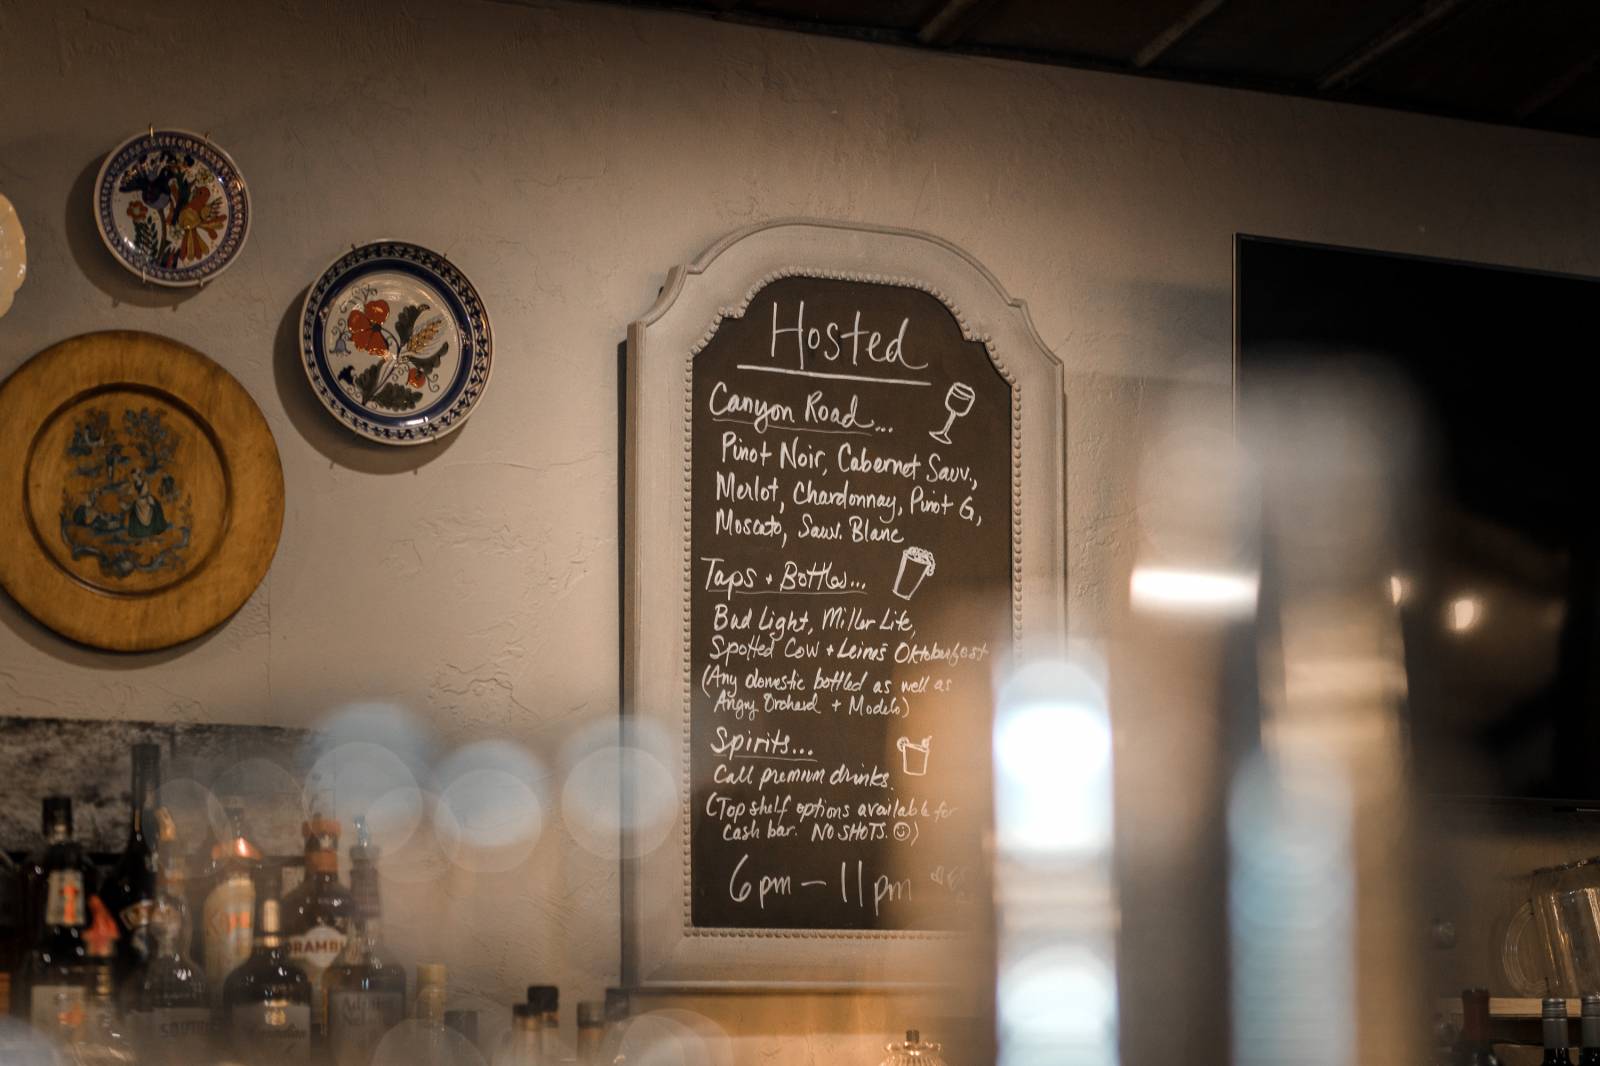 Hosted
Canyon Road...
Pinot Noir, Cabernet Sauv.,
Merlot, Chardonnay, Pinot G,
Moscato, Sauv. Blanc
Taps + Bottles...
Bud Light, Miller Lite,
Spotted Cow + Leine's Oktoberfest
(Any domestic bottled as well as
Angry Orchard + Modelo)
Spirits...
Call premium drinks.
(Top shelf options available for
cash bar. NO SHOTS. ☺)
6pm – 11pm
DRAMBU